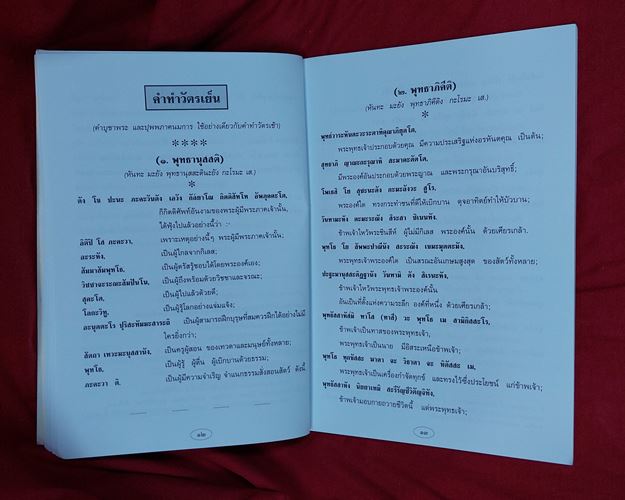 คำทำวัตรเย็น
(คำบูชาพระ และปุพพภาคนมการ ใช้อย่างเดียวกับคำทำวัตรเช้า)
****
(๑. พุทธานุสสติ)
(หันทะ มะยัง พุทธานุสสะตินะยัง กะโรมะ เส.)
*
ตัง โข ปะนะ ภะคะวันตัง เอวัง กัล๎ยาโณ กิตติสัทโท อัพภุคคะโต,
ก็กิตติศัพท์อันงามของพระผู้มีพระภาคเจ้านั้น,
ได้ฟุ้งไปแล้วอย่างนี้ว่า :-
อิติปิ โส ภะคะวา, เพราะเหตุอย่างนี้ๆ พระผู้มีพระภาคเจ้านั้น;
อะระหัง, เป็นผู้ไกลจากกิเลส;
สัมมาสัมพุทโธ, เป็นผู้ตรัสรู้ชอบได้โดยพระองค์เอง;
วิชชาจะระณะสัมปันโน, เป็นผู้ถึงพร้อมด้วยวิชชาและจรณะ;
สุคะโต, เป็นผู้ไปแล้วด้วยดี;
โลกะวิทู, เป็นผู้รู้โลกอย่างแจ่มแจ้ง;
อะนุตตะโร ปุริสะทัมมะสาระถิ เป็นผู้สามารถฝึกบุรุษที่สมควรฝึกได้อย่างไม่มี
ใครยิ่งกว่า;
สัตถา เทวะมะนุสสานัง, เป็นครูผู้สอน ของเทวดาและมนุษย์ทั้งหลาย;
พุทโธ, เป็นผู้รู้ ผู้ตื่น ผู้เบิกบานด้วยธรรม;
ภะคะวา ติ. เป็นผู้มีความจำเริญ จำแนกธรรมสั่งสอนสัตว์ ดังนี้
๑๒
(๒. พุทธาภิคีติ)
(หันทะ มะยัง พุทธาภิคีติง กะโรมะ เส.)
*
พุทธ๎วาระหันตะวะระตาทิคุณาภิยุตโต,
พระพุทธเจ้าประกอบด้วยคุณ มีความประเสริฐแห่งอรหันตคุณ เป็นต้น;
สุทธาภิ ญาณะกะรุณาหิ สะมาคะตัตโต,
มีพระองค์อันประกอบด้วยพระญาณ และพระกรุณาอันบริสุทธิ์;
โพเธสิ โย สุชะนะตัง กะมะลังวะ สูโร,
พระองค์ใด ทรงกระทำชนที่ดีให้เบิกบาน ดุจอาทิตย์ทำให้บัวบาน;
วันทามะหัง ตะมะระณัง สิระสา ชิเนนทัง,
ข้าพเจ้าไหว้พระชินสีห์ ผู้ไม่มีกิเลส พระองค์นั้น ด้วยเศียรเกล้า.
พุทโธ โย สัพพะปาณีนัง สะระณัง เขมะมุตตะมัง,
พระพุทธเจ้าพระองค์ใด เป็นสรณะอันเกษมสูงสุด ของสัตว์ทั้งหลาย;
ปะฐะมานุสสะติฏฐานัง วันทามิ ตัง สิเรนะหัง,
ข้าพเจ้าไหว้พระพุทธเจ้าพระองค์นั้น
อันเป็นที่ตั้งแห่งความระลึก องค์ที่หนึ่ง ด้วยเศียรเกล้า;
พุทธัสสาหัส๎มิ ทาโส (ทาสี) วะ พุทโธ เม สามิกิสสะโร,
ข้าพเจ้าเป็นทาสของพระพุทธเจ้า,
พระพุทธเจ้าเป็นนาย มีอิสระเหนือข้าพเจ้า;
พุทโธ ทุกขัสสะ ฆาตา จะ วิธาตา จะ หิตัสสะ เม,
พระพุทธเจ้าเป็นเครื่องกำจัดทุกข์ และทรงไว้ซึ่งประโยชน์ แก่ข้าพเจ้า;
พุทธัสสาหัง นิยยาเทมิ สะรีรัญชีวิตัญจิทัง,
ข้าพเจ้ามอบกายถวายชีวิตนี้ แด่พระพุทธเจ้า;
๑๓